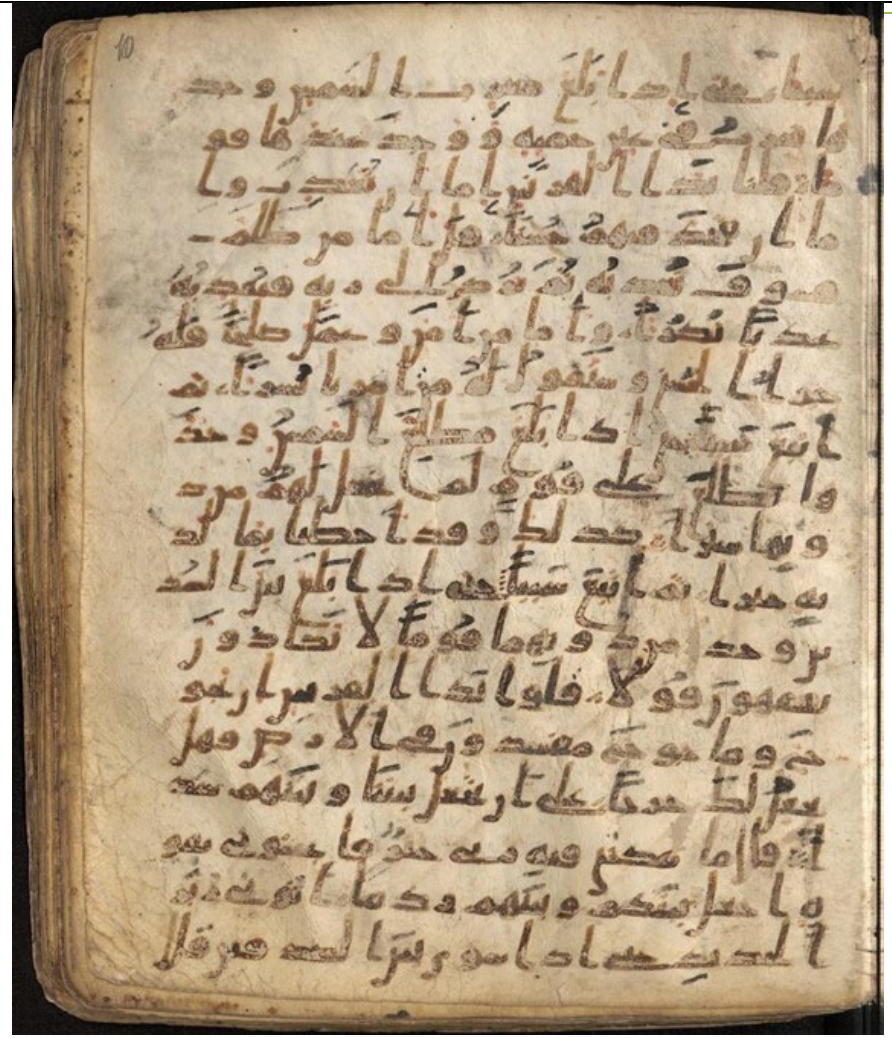 سببا حتى اذا بلغ مغرب الشمس وجد
ها تغرب في عين حمئه و وجد عندها قو
ما قلنا يذا القرنين اما ان تعذب و ا
ما ان تتخذ فيهم حسنا قل اما من ظلم
فسوف نعذبه ثم يرد الى ربه فيعذبه
عذبا نكرا و اما من امن و عمل صلحا فله
جزا الحسنى و سنقول له من امرنا يسرا ثم
اتبع سببا حتى اذا بلغ مطلع الشمس وجد
ها تطلع على قوم لم نجعل لهم من د
ونها سترا كذلك و قد احطنا بما لد
يه خبرا ثم اتبع سببا حتى اذا بلغ بين السد
ين وجد من دونهما قوما لا يكادون
يفقهون قولا قلوا يذا القرنين ان يجو
ج و ماجوج مفسدون في الارض فهل
نجعل لك خرجا على ان تجعل بيننا و بينهم سد
ا قال ما مكني فيه ربي خير فاعينوني بقو
ه اجعل بينكم و بينهم ردما اتوني زبر
الحديد حتى اذا سوى بين الصدفين قل